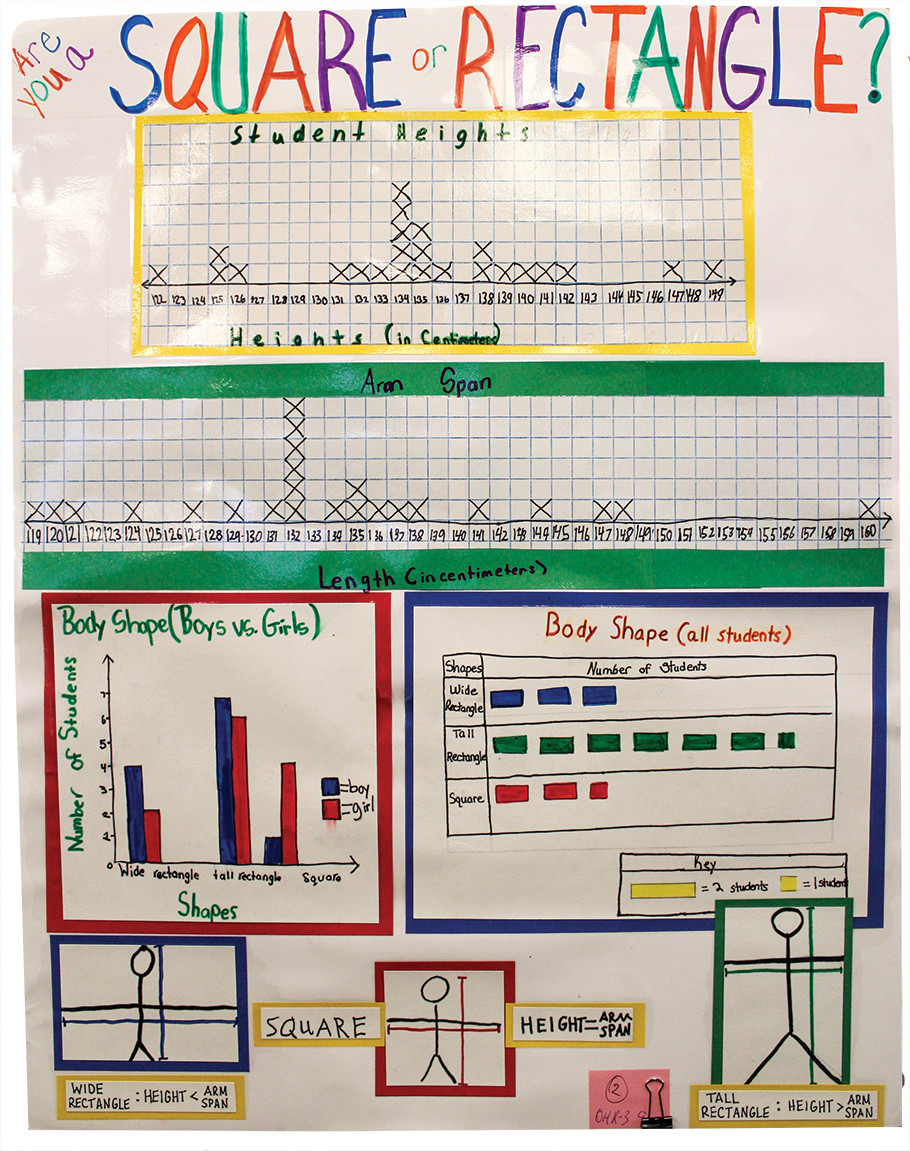 Are you a
SQUARE or RECTANGLE?
Student Heights
122 123 124 125 126 127 128 129 130 131 132 133 134 135 136 137 138 139 140 141 142 143 144 145 146 147 148 149
Heights (in Centimeters)
Arm Span
119 120 121 122 123 124 125 126 127 128 129 130 131 132 133 134 135 136 137 138 139 140 141 142 143 144 145 146 147 148 149 150 151 152 153 154 155 156 157 158 159 160
Length (in centimeters)
Body Shape (Boys vs. Girls)
Number of Students
7
6
5
4
3
2
0
=boy
=girl
Wide rectangle tall rectangle Square
Shapes
Body Shape (all students)
Shapes Number of Students
Wide
Rectangle
Tall
Rectangle
Square
Key
= 2 students = 1 student
SQUARE
HEIGHT=ARM SPAN
WIDE RECTANGLE : HEIGHT < ARM SPAN
2
OHR-3
TALL RECTANGLE : HEIGHT > ARM SPAN